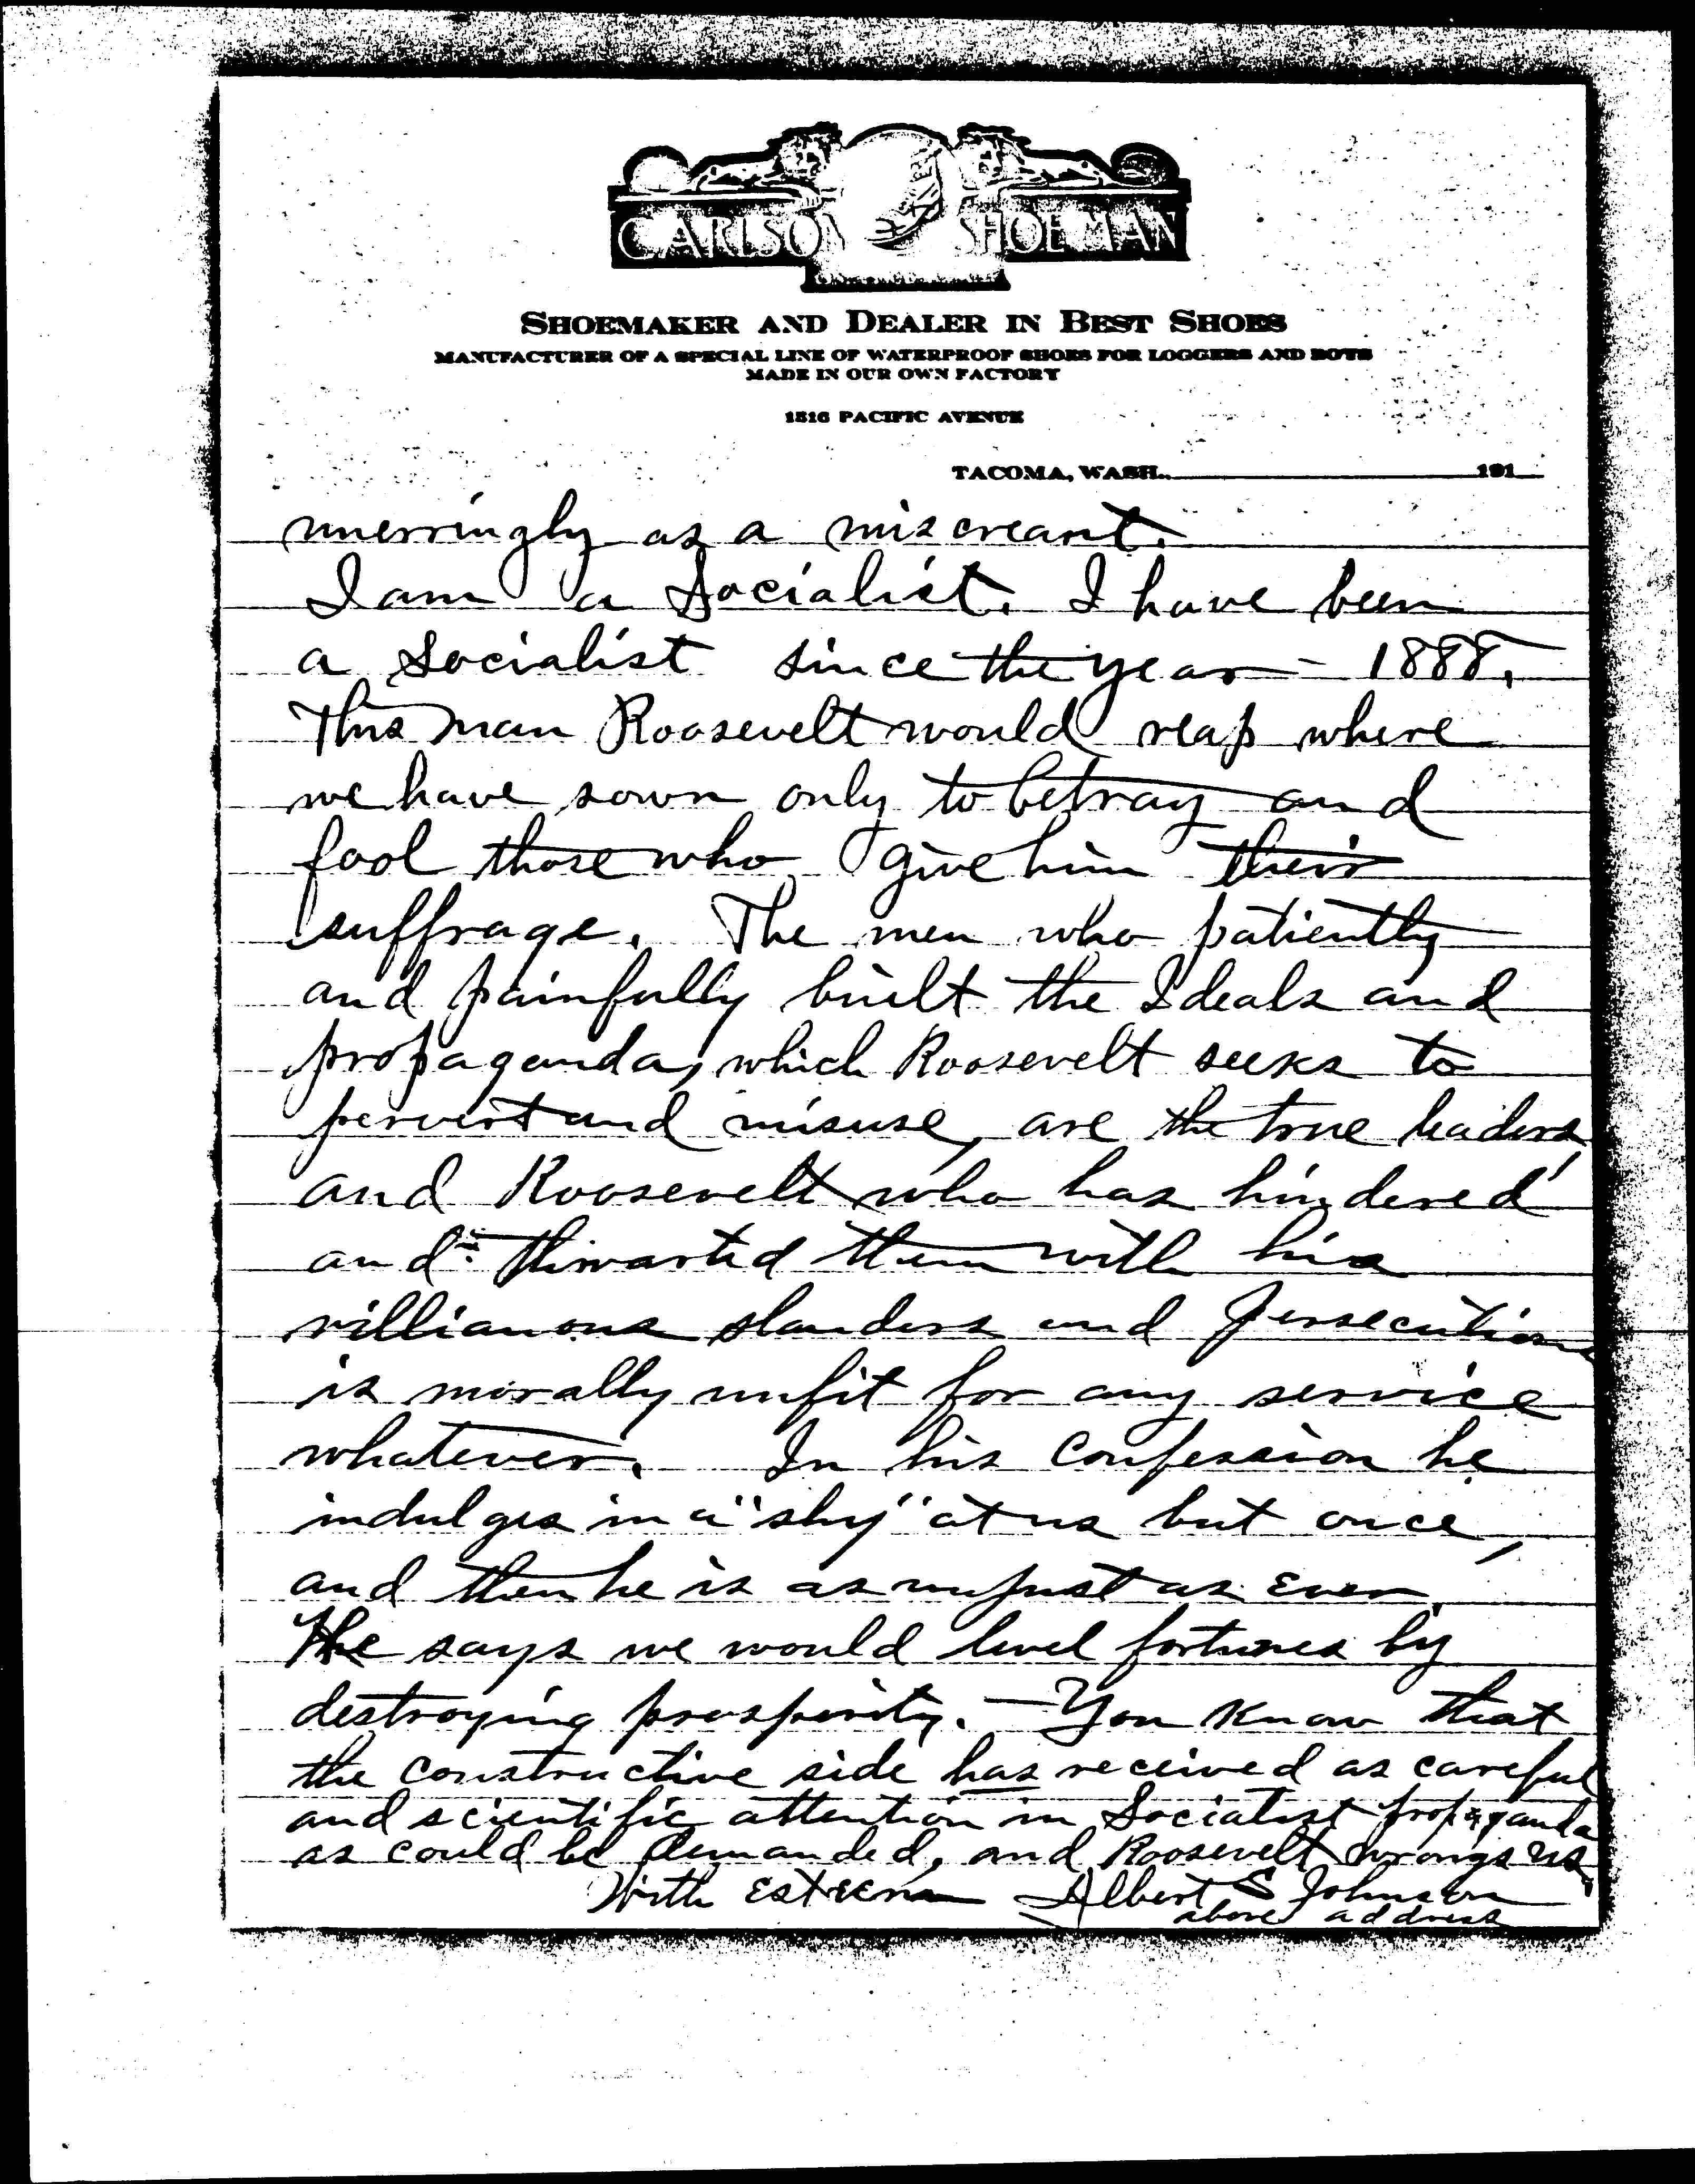 CARLSON SHOE MAN
SHOEMAKER AND DEALER IN BEST SHOES
MANUFACTURER OF A SPECIAL LINE OF WATERPROOF SHOES FOR LOGGERS AND BOYS
MADE IN OUR OWN FACTORY
1516 PACIFIC AVENUE
TACOMA, WASH. 191
unerringly as a miscreant.
I am a Socialist. I have been
a Socialist since the year - 1888.
This man Roosevelt would reap where
we have sown only to betray and
fool those who give him their
suffrage. The men who patiently
and painfully built the Ideals and
propaganda, which Roosevelt seeks to
pervert and misuse, are the true leaders,
and Roosevelt who has hindered
and thwarted them with his
villianous slanders and persecutions
is morally unfit for any service
whatever. In his Confession he
indulges in a "shy" at us but once,
and then he is as unjust as Ever.
He says we would level fortunes by
destroying prosperity. - You Know that
the constructive side has received as careful
and scientific attention in Socialist propaganda
as could be demanded, and Roosevelt wrongs us.
With Esteem Albert S Johnson
above address